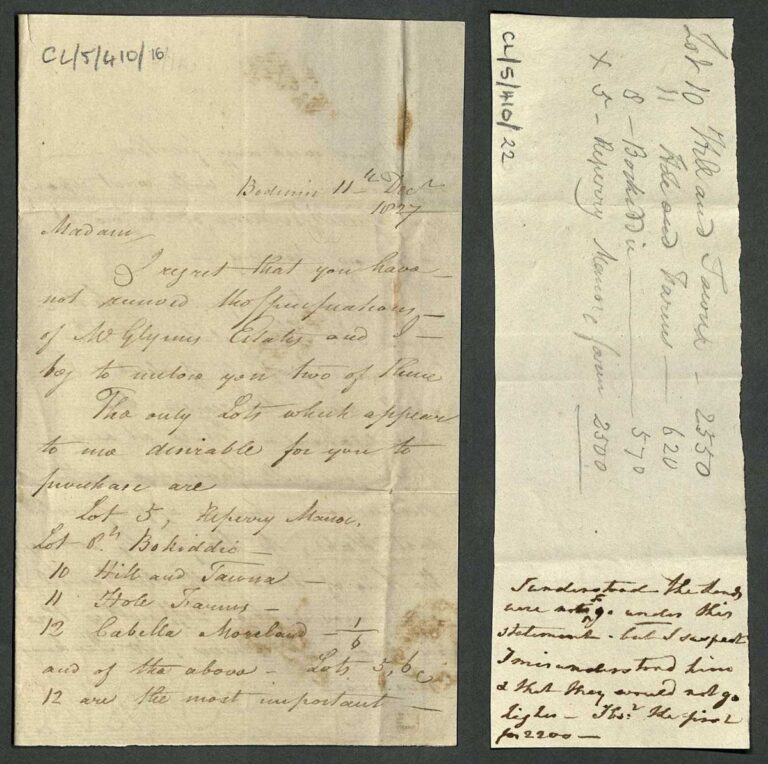 CL/5/410/16
Bodmin 11th Decr
1827
Madam
I regret that you have
not received the Specifications
of Mr Glynns Estates and I
beg to inclose you two of them
The only Lots which appear
to me desirable for you to
purchase are
Lot 5, Reperry Manor.
Lot 8th Bokiddic
10 Hill and Tawna
11 Hole Farms
12 Cabella Moreland 1/6
and of the above Lots 5, 6
12 are the most important
CL/5/410/22
Lot 10 Hill and Tawna - 2350
11 Hole and Farms - 620
8 - Bokiddic 570
x 5 - Reperry Manor farm 2500
I understood the Lands
were not to go under this
statement - but I suspect
I misunderstood him
& that they would not go
higher - the first
for 2200 -